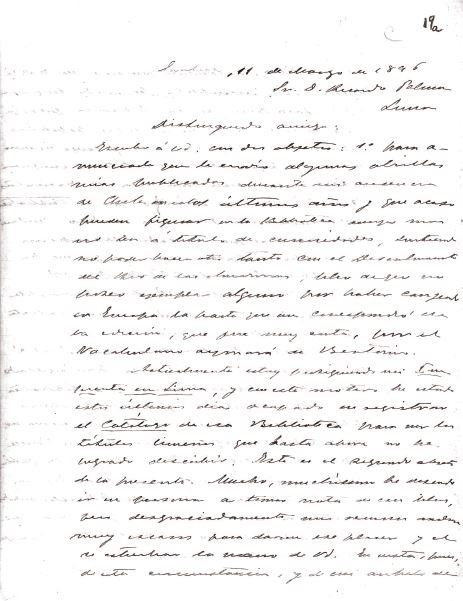 19a
11 de Marzo de 1896
Sr. D. Ricardo Palma
Lima
Distinguido amigo:
Escribo á Ud. con dos objetos: 1.º para a-
nunciarle que le envío algunas obrillas
mias publicadas durante mi ausencia
de Chile en estos últimos años y que acaso
puedan figurar en la Biblioteca aunque mas
no sea á título de curiosidades, sintiendo
no poder hacer otro tanto con el Descubrimiento
del Rio de las Amazonas, pues no
poseo ejemplar alguno por haber canjeado
en Europa la parte que me correspondió en
la edicion, que fué muy corta, por el
Vocabulario aymará de Bertonio.
Actualmente estoy prosiguiendo mi Im-
prenta en Lima, y con este motivo he estado
estos últimos dias ocupado en registrar
el Catálogo de esa Biblioteca para ver los
títulos limeños que hasta ahora no he
logrado describir. Este es el segundo objeto
de la presente. Mucho, muchísimo he deseado
ir en persona a tomar nota de esos libros,
pero desgraciadamente mis recursos son
muy escasos para darme ese placer y el
de estrechar la mano de Ud. En vista, pues,
de esta circunstancia, y de mi anhelo de